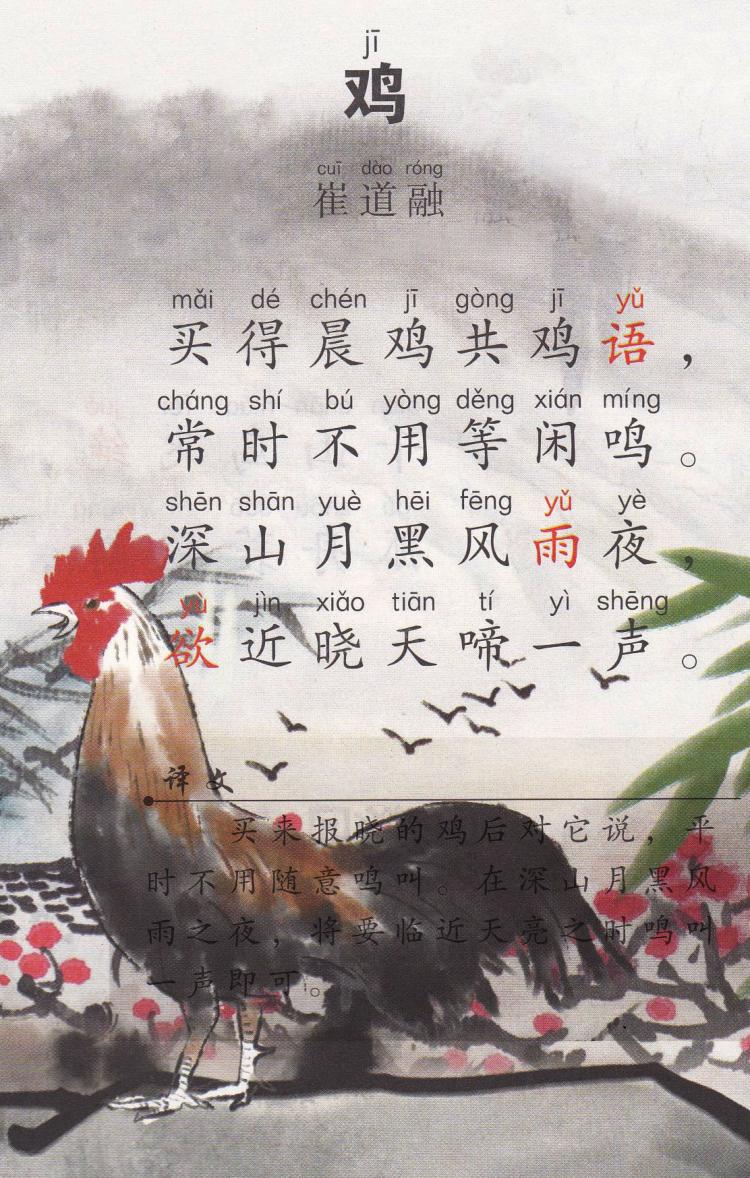 jī
鸡
cuī dào róng
崔道融
mǎi dé chén jī gòng jī yǔ
买得晨鸡共鸡语，
cháng shí bú yòng děng xián míng
常时不用等闲鸣。
shēn shān yuè hēi fēng yǔ yè
深山月黑风雨夜，
yù jìn xiǎo tiān tí yì shēng
欲近晓天啼一声。
译文
买来报晓的鸡后对它说，平
时不用随意鸣叫。在深山月黑风
雨之夜，将要临近天亮之时鸣叫
一声即可。